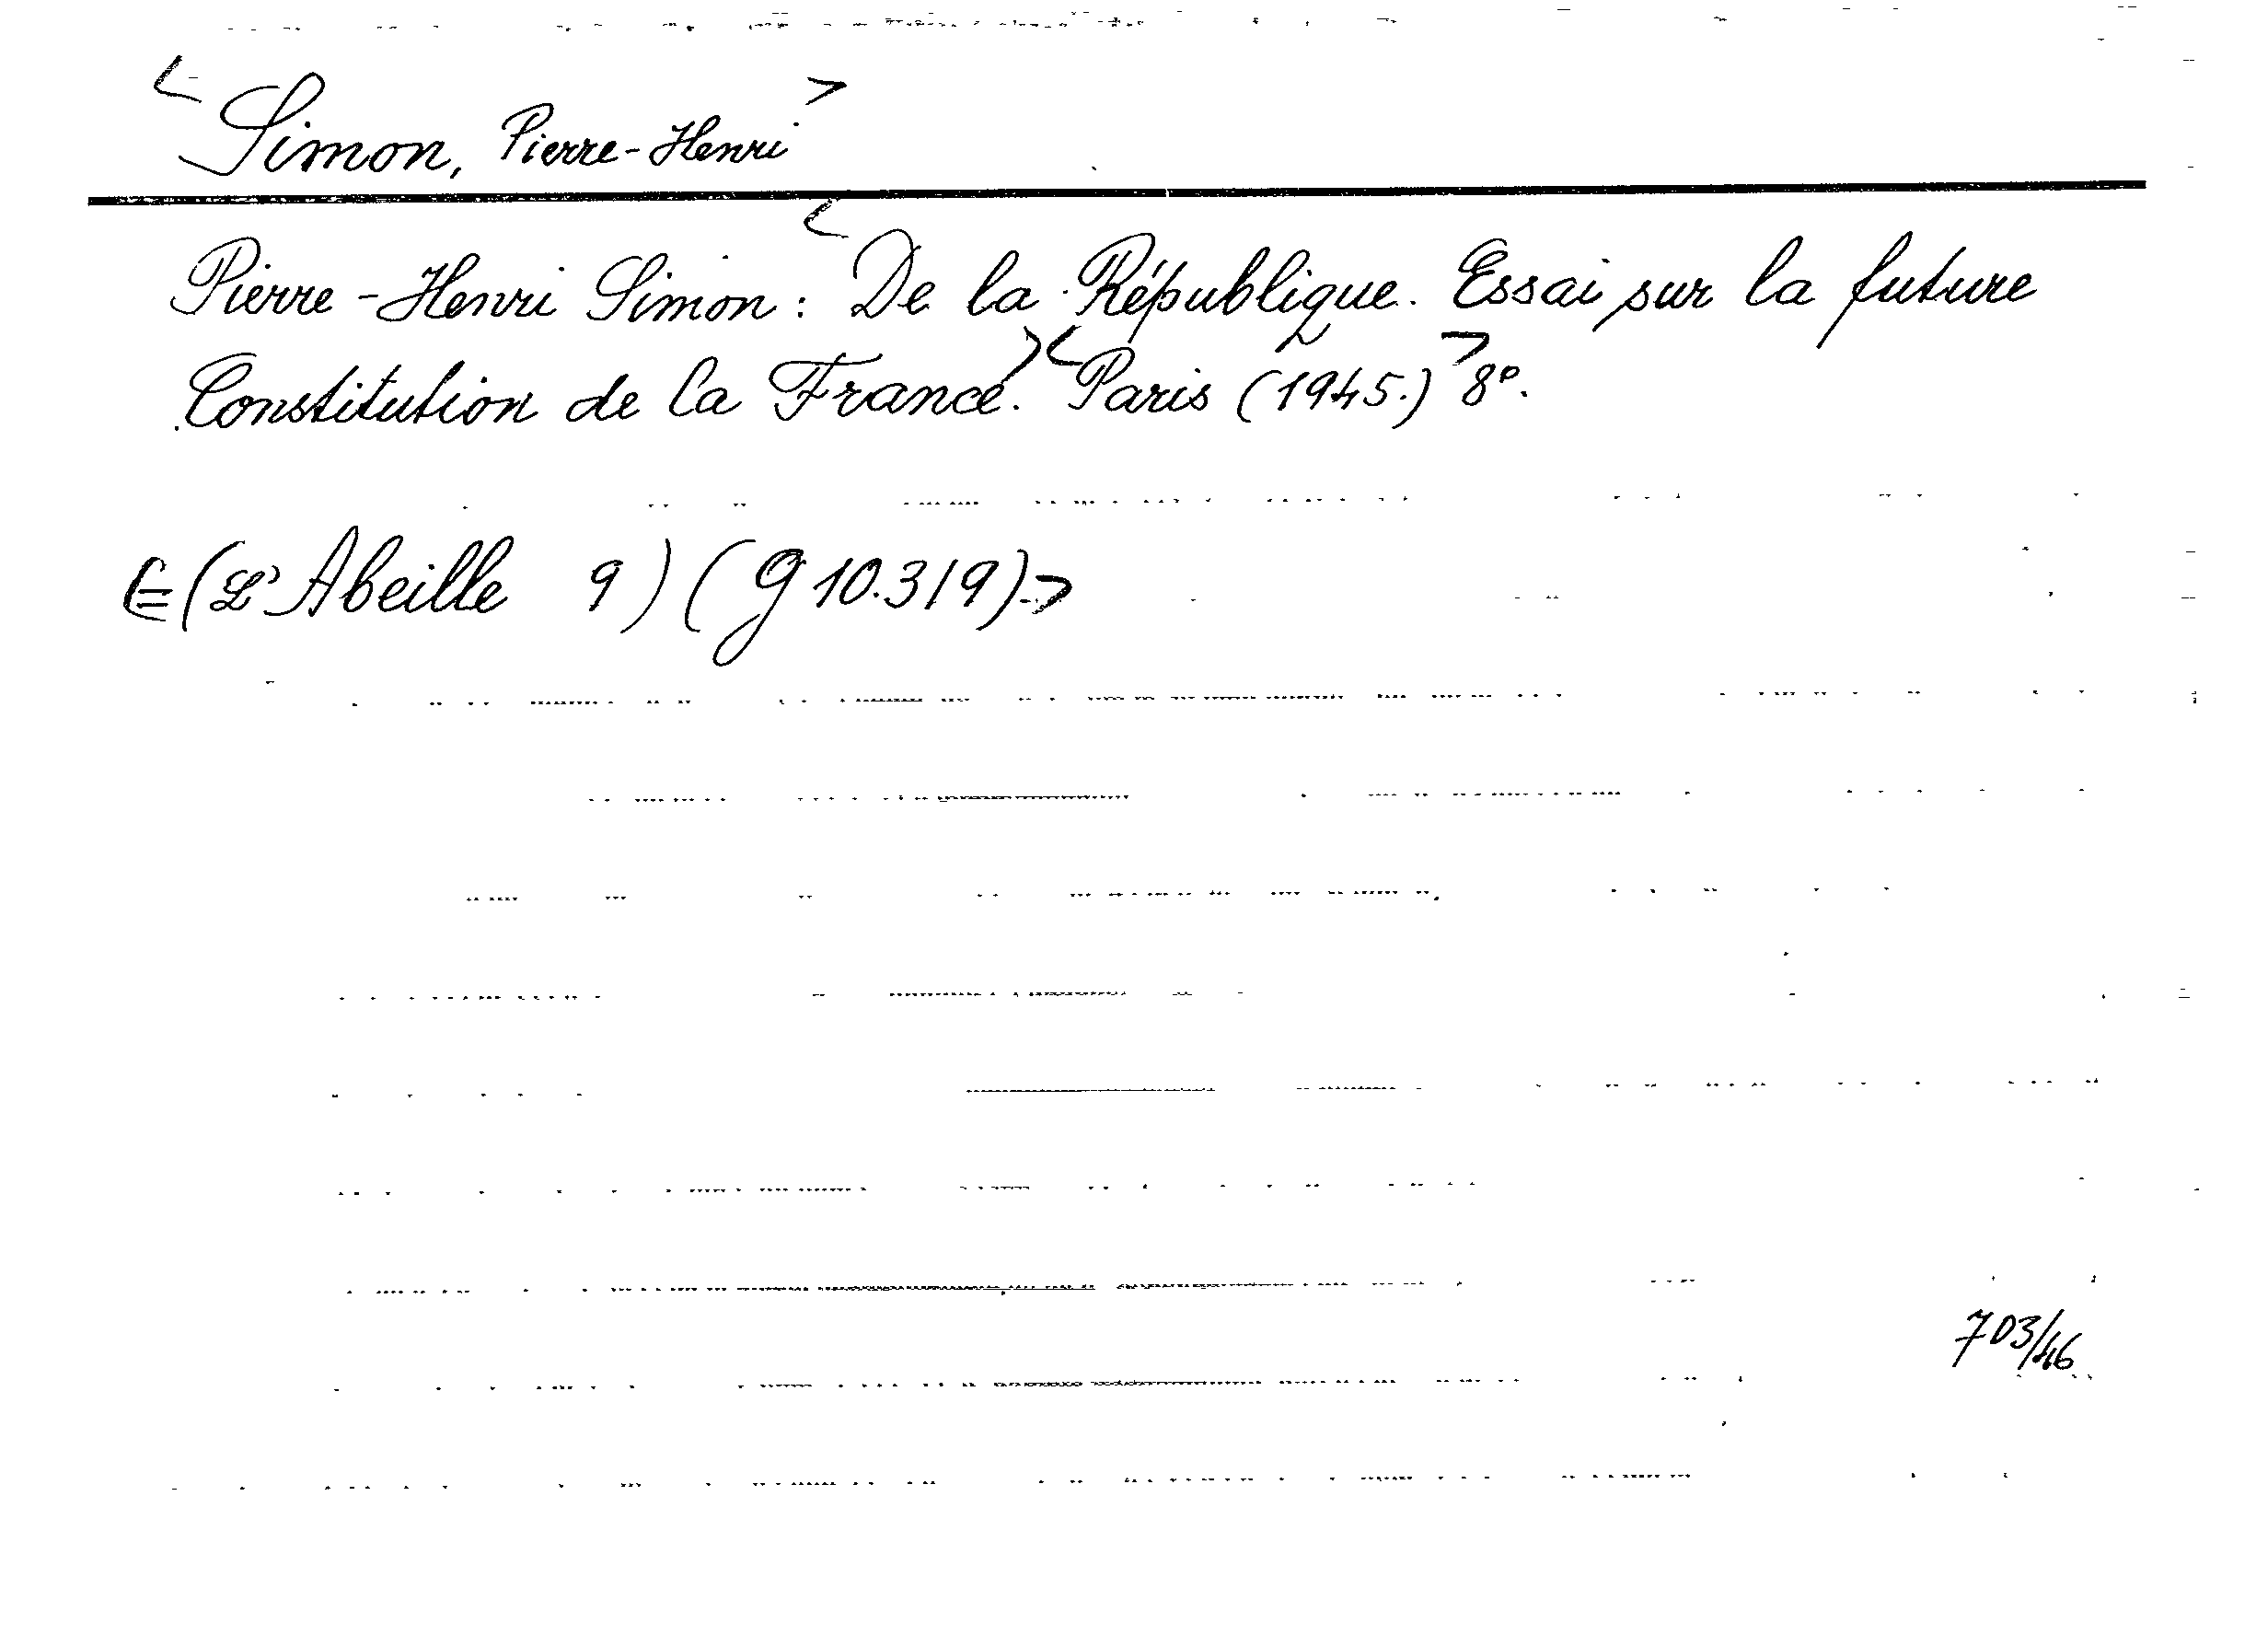 <Simon, Pierre-Henri>
Pierre-Henri Simon: <De la République. Essai sur la future
Constitution de la France.> <Paris (1945.)> 8°.
<= (L'Abeille 9) (G 10.319)->
703/46